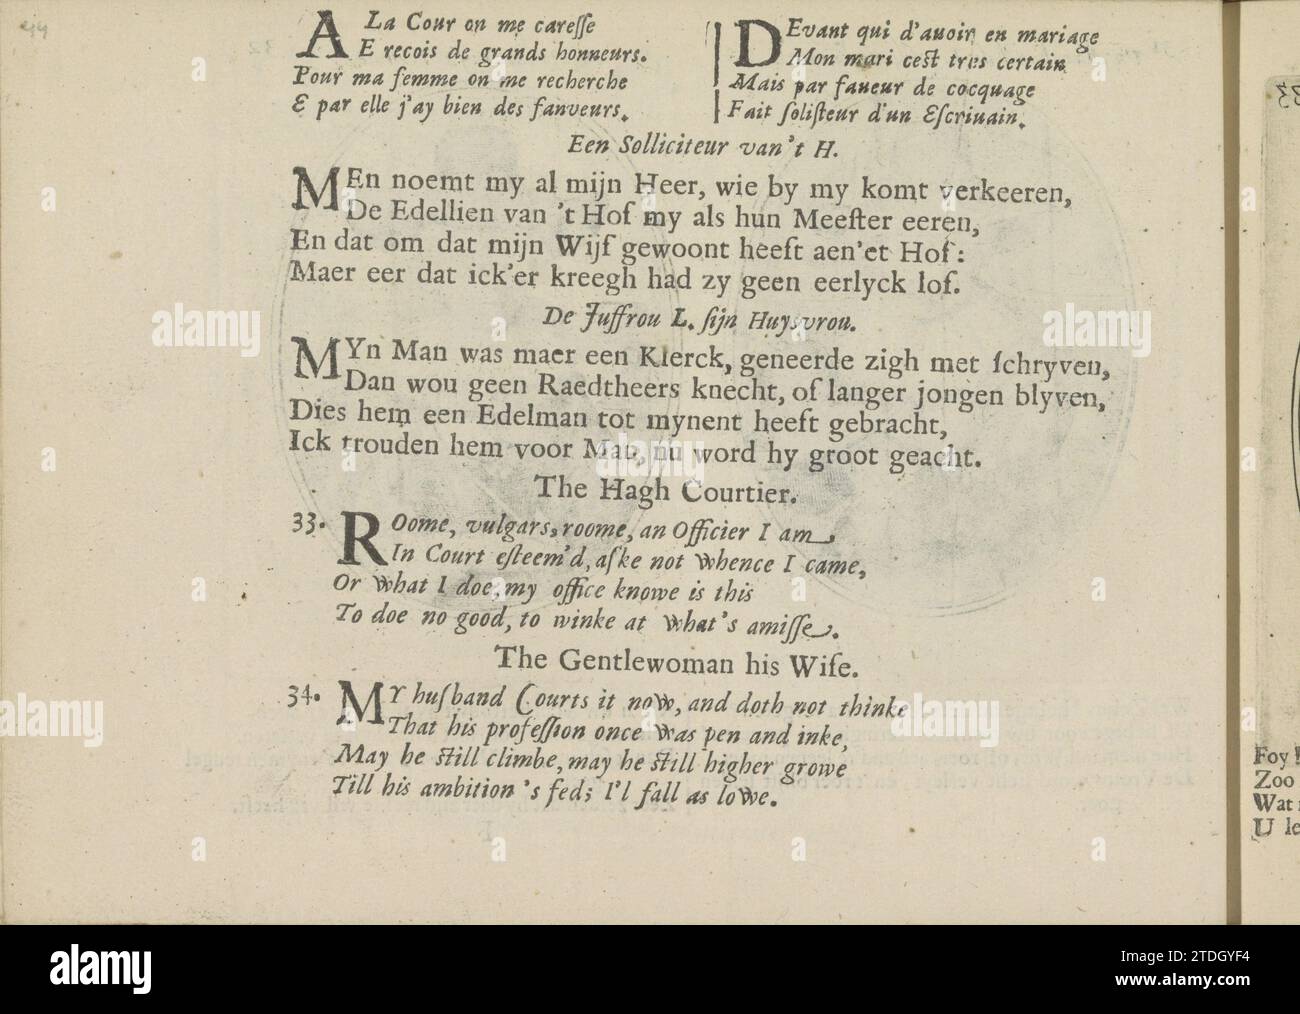 44
A La Cour on me caresse
E recois de grands honneurs.
Pour ma femme on me recherche
E par elle j'ay bien des fanveurs.
DEvant qui d'auoir en mariage
Mon mari cest tres certain
Mais par faueur de cocquage
Fait soliſteur d'un Eſcriuain.
Een Solliciteur van't H.
MEn noemt my al mijn Heer, wie by my komt verkeeren,
De Edellien van 't Hof my als hun Meeſter eeren,
En dat om dat mijn Wijf gewoont heeft aen'et Hof:
Maer eer dat ick'er kreegh had zy geen eerlyck lof.
De Juffrou L. ſijn Huysvrou.
MYn Man was maer een Klerck, geneerde zigh met ſchryven,
Dan wou geen Raedtheers knecht, of langer jongen blyven,
Dies hem een Edelman tot mynent heeft gebracht,
Ick trouden hem voor Man, nu word hy groot geacht.
The Hagh Courtier.
33. ROome, vulgars, roome, an Officier I am,
In Court eſteem'd, aſke not whence I came,
Or what I doe, my office knowe is this
To doe no good, to winke at what's amiſſe.
The Gentlewoman his Wife.
34. MY huſband Courts it now, and doth not thinke
That his profeſſion once was pen and inke,
May he ſtill climbe, may he ſtill higher growe
Till his ambition's fed; I'l fall as lowe.
Foy
Zoo
Wat
U le
alamy
alamy
Image ID: 2TDGYF4
www.alamy.com